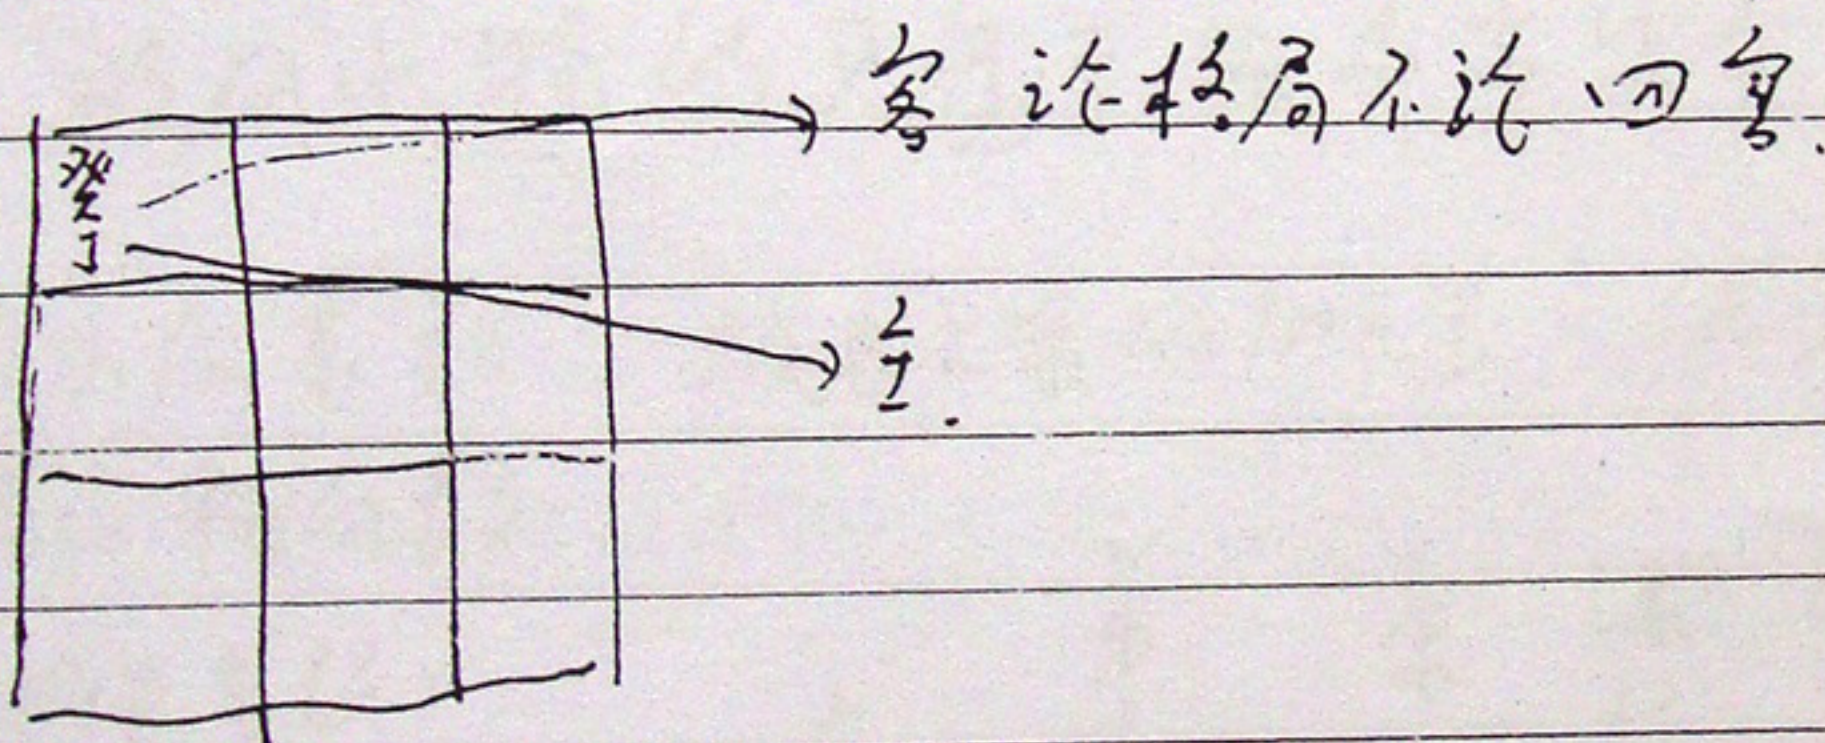 客 论格局不论 四害.
癸
丁
主.